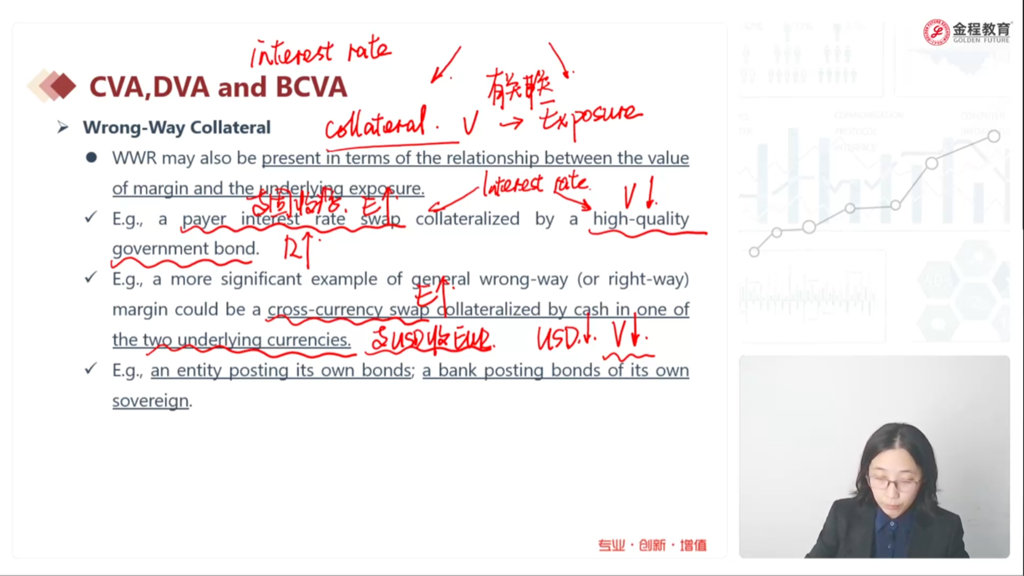 金程教育
GOLDEN FUTURE
interest rate
CVA,DVA and BCVA
有关联
Wrong-Way Collateral
collateral. V → Exposure
WWR may also be present in terms of the relationship between the value
of margin and the underlying exposure.
Interest rate
支固收浮. E↑
V↓
E.g., a payer interest rate swap collateralized by a high-quality
government bond.
R↑
E.g., a more significant example of general wrong-way (or right-way)
E↑
margin could be a cross-currency swap collateralized by cash in one of
the two underlying currencies.
支USD收EUR
USD↓ V↓
E.g., an entity posting its own bonds; a bank posting bonds of its own
sovereign.
专业·创新·增值